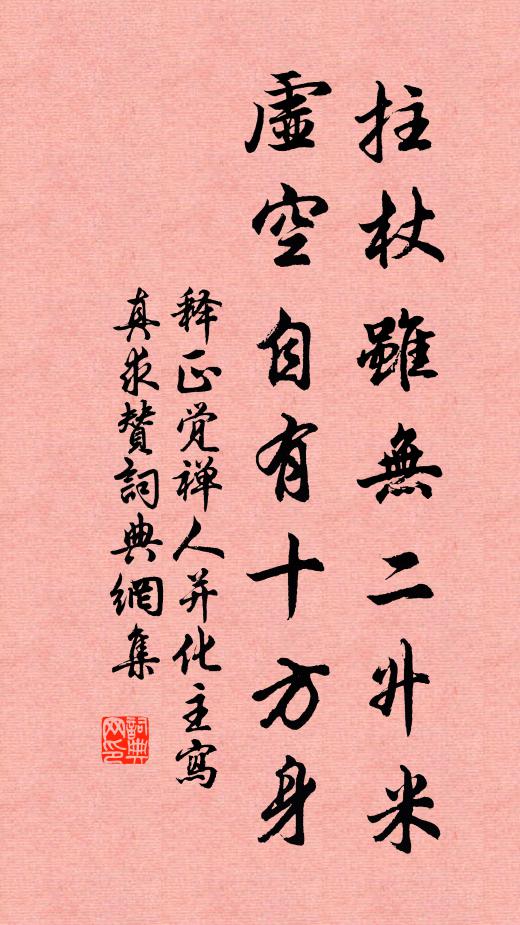 拄杖雖無二升米
虛空自有十方身
释正觉禅人并化主寫
真求贊詞典網集
詞典网印